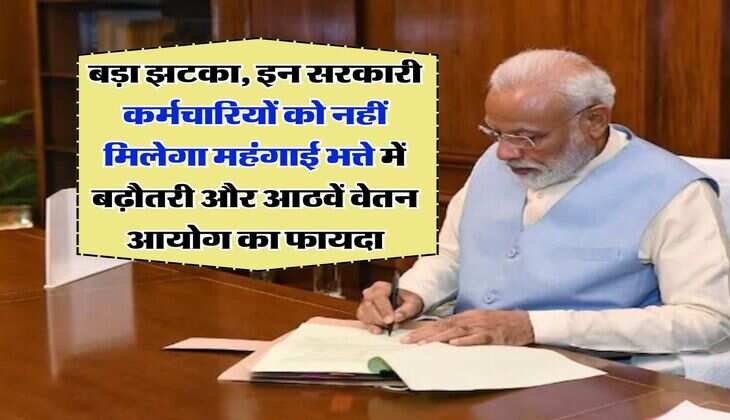 बड़ा झटका, इन सरकारी
कर्मचारियों को नहीं
मिलेगा महंगाई भत्ते में
बढ़ौतरी और आठवें वेतन
आयोग का फायदा